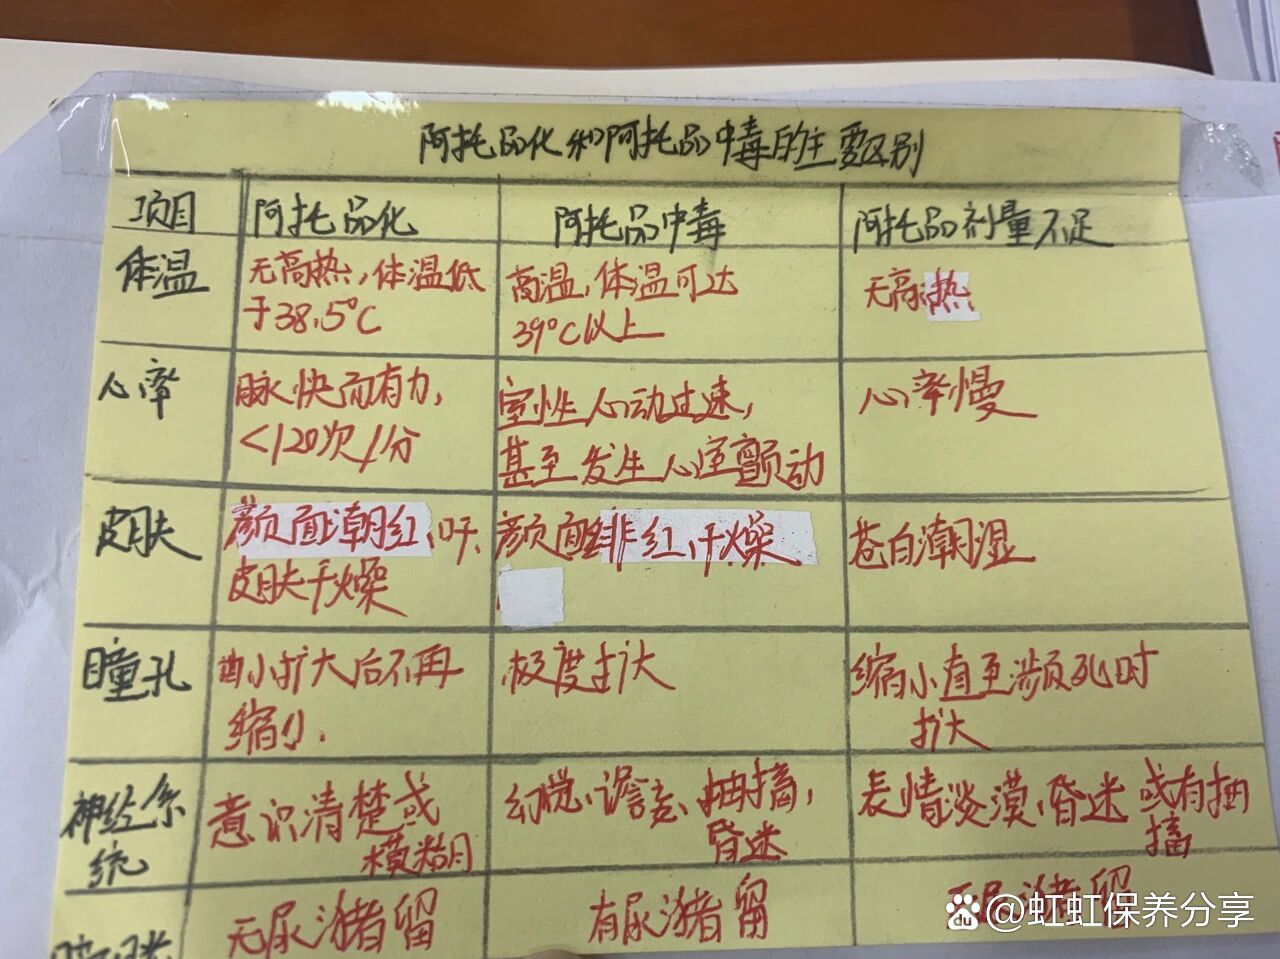 阿托品化和阿托品中毒的主要区别
项目
阿托品化
阿托品中毒
阿托品剂量不足
体温
无高热,体温低
于38.5°C
高温,体温可达
39°C以上
无高热
心率
脉快而有力,
<120次/分
室性心动过速,
甚至发生心室颤动
心率慢
皮肤
颜面潮红、口干、
皮肤干燥
颜面绯红、干燥
苍白潮湿
瞳孔
由小扩大后不再
缩小.
极度扩大
缩小直至濒死时
扩大
神经系
统
意识清楚或
模糊
幻觉、谵妄、抽搐,
昏迷
表情淡漠、昏迷 或有抽
搐
无尿潴留
有尿潴留
无尿潴留
Bai du @虹虹保养分享